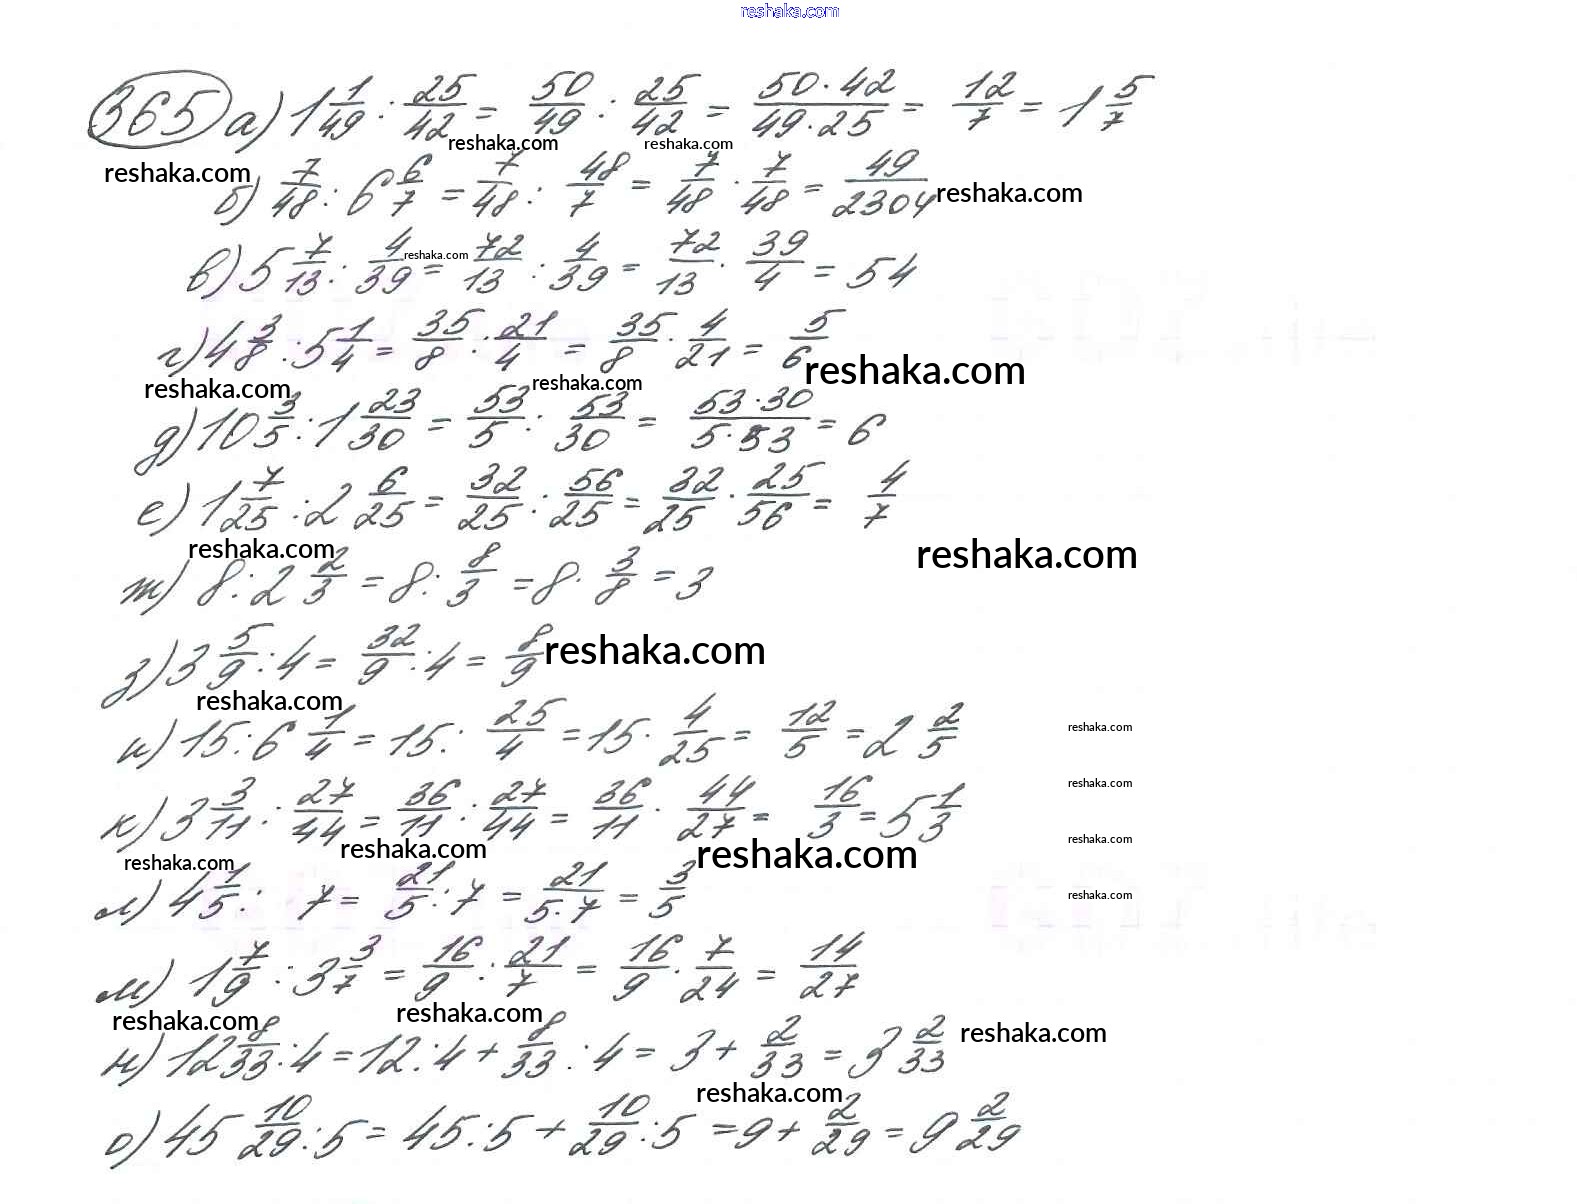 reshaka.com
365 а) 1 1/49 : 25/42 = 50/49 : 25/42 = 50·42/49·25 = 12/7 = 1 5/7
reshaka.com reshaka.com
reshaka.com
б) 7/48 : 6 6/7 = 7/48 : 48/7 = 7/48 · 7/48 = 49/2304 reshaka.com
в) 5 7/13 : 4/39 = 72/13 : 4/39 = 72/13 · 39/4 = 54
reshaka.com
г) 4 3/8 : 5 1/4 = 35/8 : 21/4 = 35/8 · 4/21 = 5/6 reshaka.com
reshaka.com reshaka.com
д) 10 3/5 : 1 23/30 = 53/5 : 53/30 = 53·30/5·53 = 6
е) 1 7/25 : 2 6/25 = 32/25 : 56/25 = 32/25 · 25/56 = 4/7
reshaka.com reshaka.com
ж) 8 : 2 2/3 = 8 : 8/3 = 8 · 3/8 = 3
з) 3 5/9 : 4 = 32/9 : 4 = 8/9 reshaka.com
reshaka.com
и) 15 : 6 1/4 = 15 : 25/4 = 15 · 4/25 = 12/5 = 2 2/5 reshaka.com
reshaka.com
к) 3 3/11 : 27/44 = 36/11 : 27/44 = 36/11 · 44/27 = 16/3 = 5 1/3
reshaka.com
reshaka.com reshaka.com reshaka.com
л) 4 1/5 : 7 = 21/5 : 7 = 21/5·7 = 3/5 reshaka.com
м) 1 7/9 : 3 3/7 = 16/9 : 21/7 = 16/9 · 7/24 = 14/27
reshaka.com reshaka.com
н) 12 8/33 : 4 = 12 : 4 + 8/33 : 4 = 3 + 2/33 = 3 2/33 reshaka.com
reshaka.com
о) 45 10/29 : 5 = 45 : 5 + 10/29 : 5 = 9 + 2/29 = 9 2/29